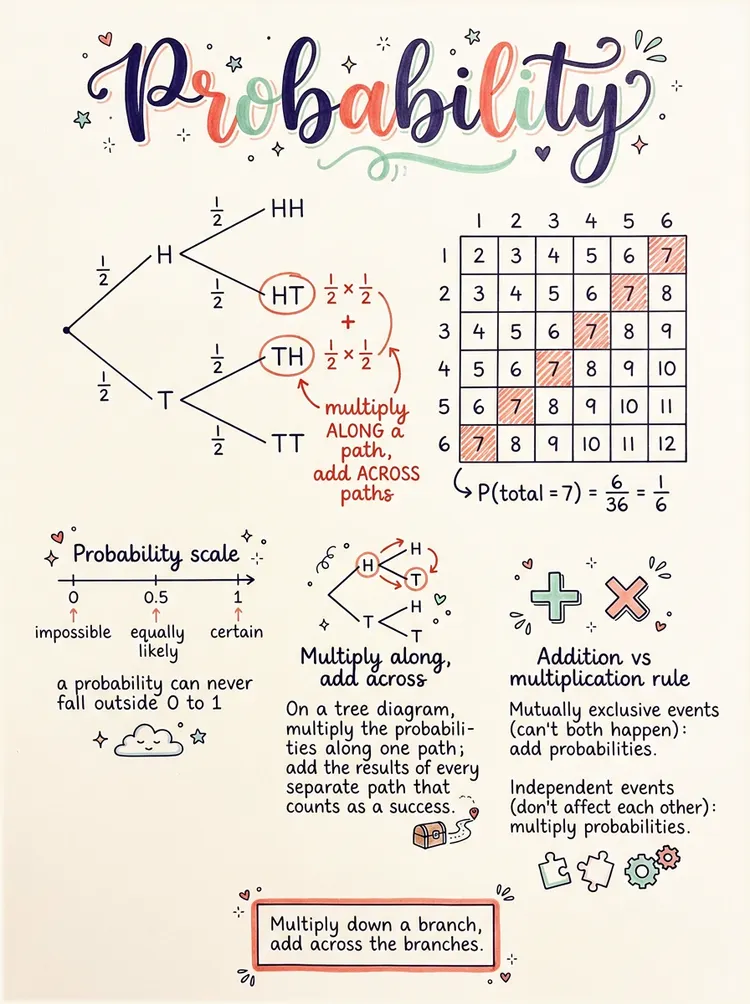 Probability
1/2
HH
H
1/2
1/2
HT
1/2 × 1/2
+
1/2
TH
1/2 × 1/2
1/2
T
1/2
TT
multiply
ALONG a
path,
add ACROSS
paths
1 2 3 4 5 6
1 2 3 4 5 6 7
2 3 4 5 6 7 8
3 4 5 6 7 8 9
4 5 6 7 8 9 10
5 6 7 8 9 10 11
6 7 8 9 10 11 12
P(total = 7) = 6/36 = 1/6
Probability scale
0 0.5 1
impossible equally certain
likely
a probability can never
fall outside 0 to 1
H
H
T
T
H
T
Multiply along,
add across
On a tree diagram,
multiply the probabili-
ties along one path;
add the results of every
separate path that
counts as a success.
Addition vs
multiplication rule
Mutually exclusive events
(can't both happen):
add probabilities.
Independent events
(don't affect each other):
multiply probabilities.
Multiply down a branch,
add across the branches.